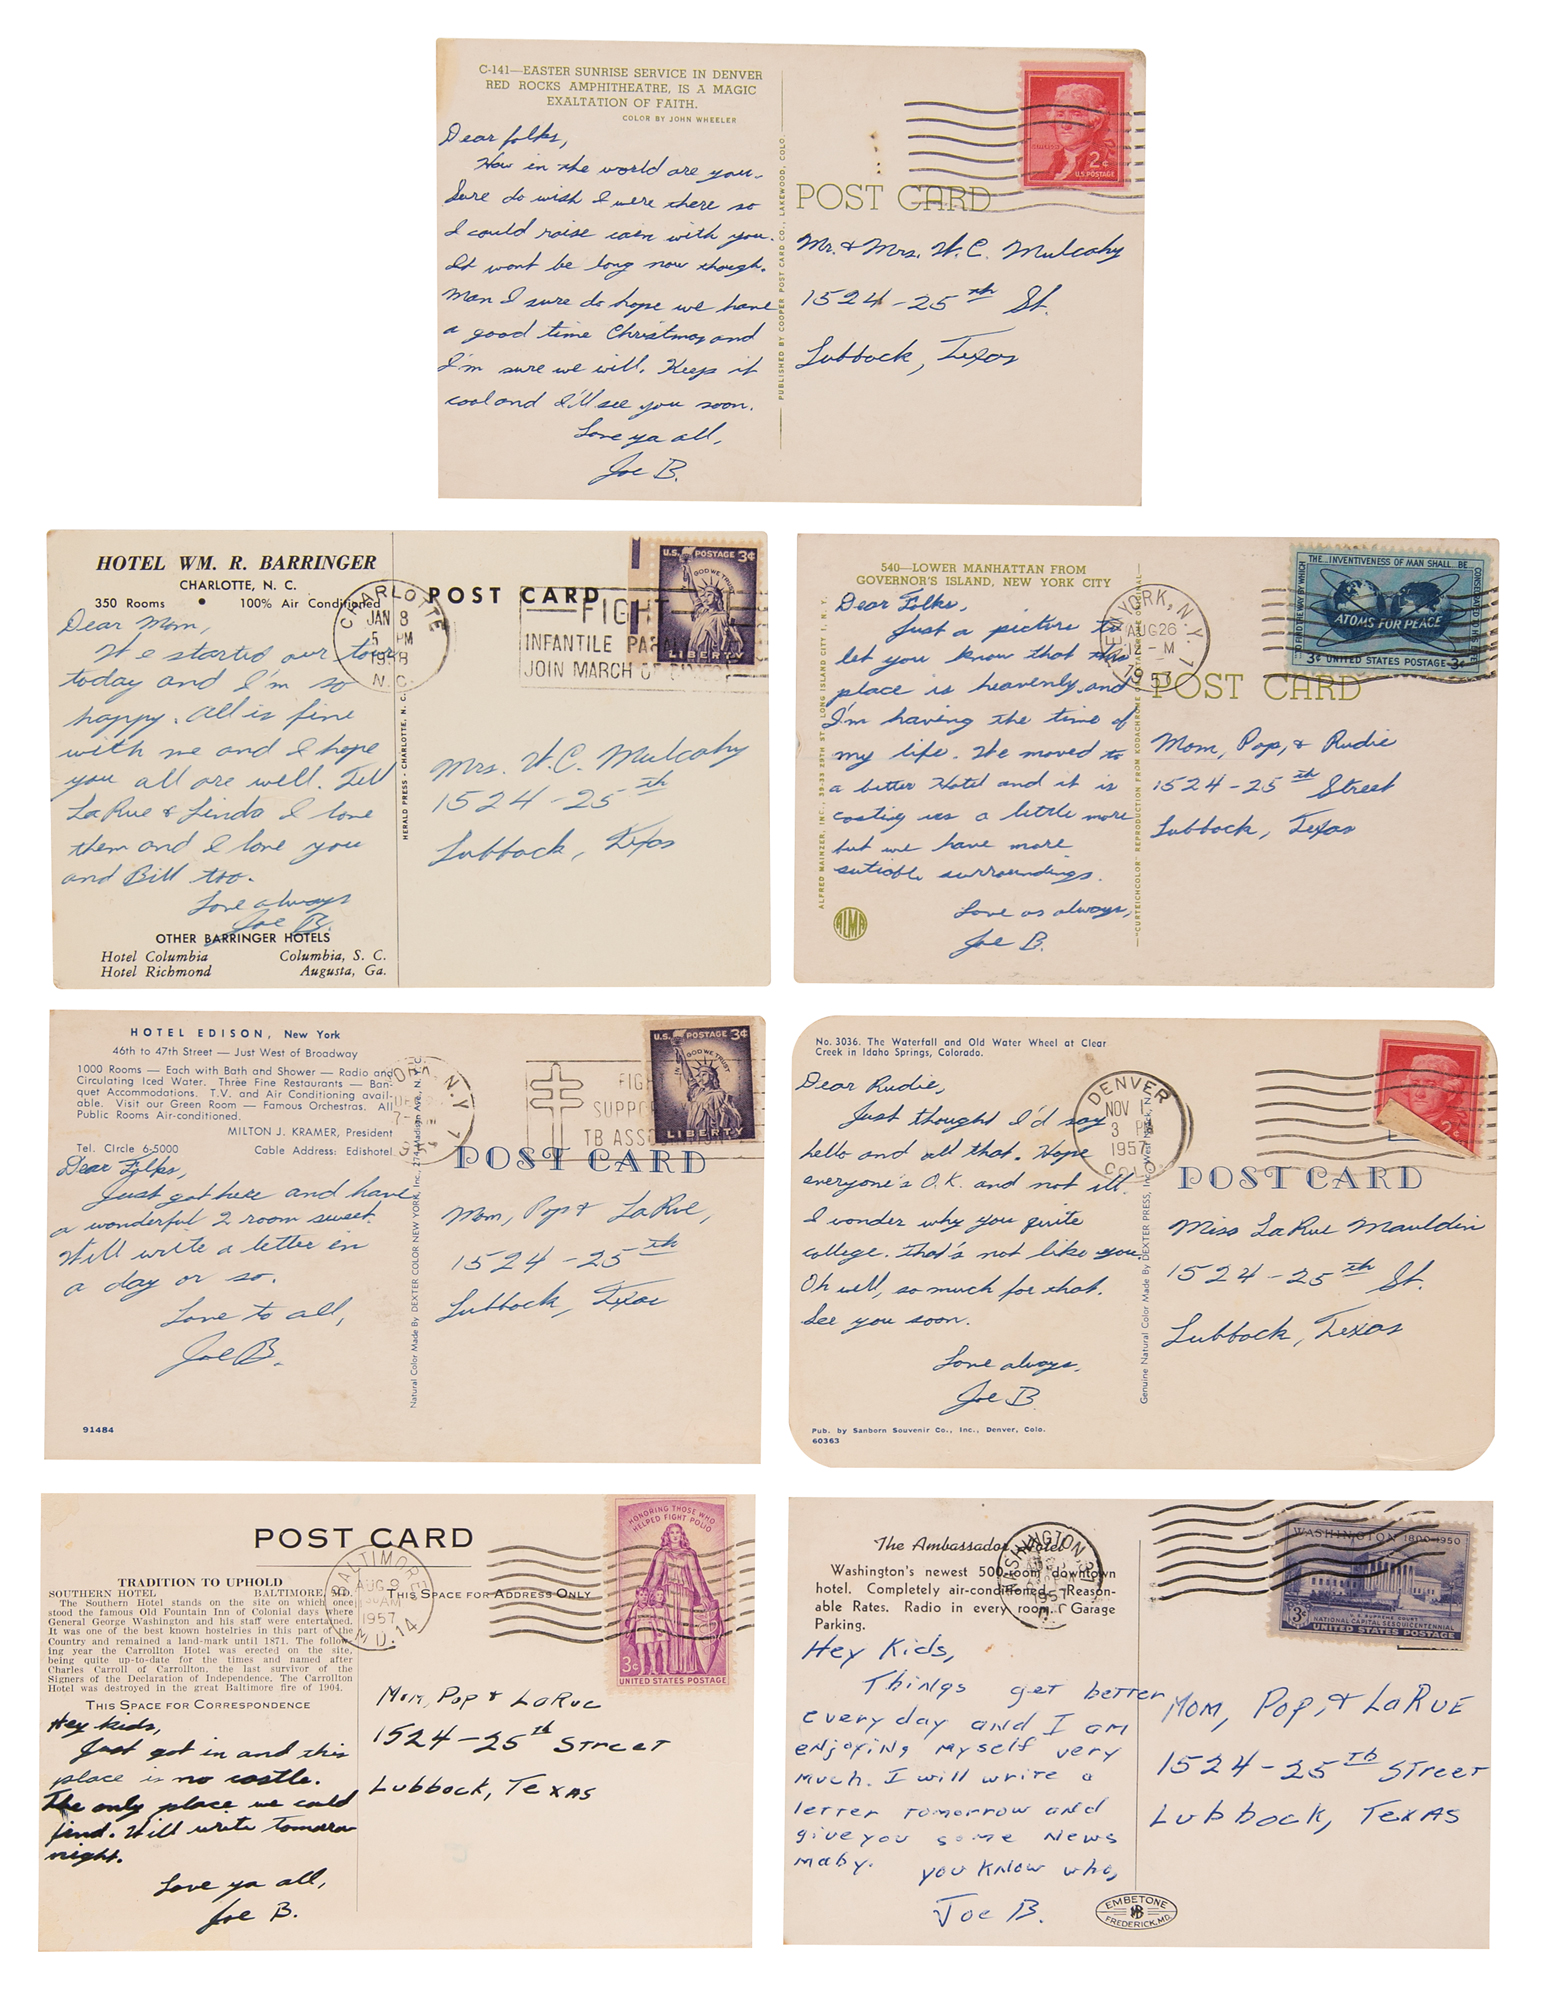 C-141—EASTER SUNRISE SERVICE IN DENVER
RED ROCKS AMPHITHEATRE, IS A MAGIC
EXALTATION OF FAITH.
COLOR BY JOHN WHEELER
Dear folks,
How in the world are you.
Sure do wish I were there so
I could raise cain with you.
It wont be long now though.
Man I sure do hope we have
a good time Christmas and
I'm sure we will. Keep it
cool and I'll see you soon.
Love ya all,
Joe B.
PUBLISHED BY COOPER POST CARD CO., LAKEWOOD, COLO.
2¢
U.S. POSTAGE
POST CARD
Mr. & Mrs. W.C. Mulcahy
1524-25th St.
Lubbock, Texas
HOTEL WM. R. BARRINGER
CHARLOTTE, N. C.
350 Rooms • 100% Air Conditioned
Dear Mom,
We started our tour
today and I'm so
happy. All is fine
with me and I hope
you all are well. Tell
LaRue & Linda I love
them and I love you
and Bill too.
Love always
Joe B.
OTHER BARRINGER HOTELS
Hotel Columbia Columbia, S. C.
Hotel Richmond Augusta, Ga.
HERALD PRESS - CHARLOTTE, N. C.
CHARLOTTE
JAN 8
5 PM
1958
N.C.
POST CARD
FIGHT
INFANTILE
JOIN MARCH OF
U.S. POSTAGE 3¢
IN GOD WE TRUST
LIBERTY
Mrs. W.C. Mulcahy
1524-25th
Lubbock, Texas
540—LOWER MANHATTAN FROM
GOVERNOR'S ISLAND, NEW YORK CITY
Dear Folks,
Just a picture to
let you know that this
place is heavenly and
I'm having the time of
my life. We moved to
a better Hotel and it is
costing us a little more
but we have more
suticble surroundings.
Love as always,
Joe B.
ALMA
ALFRED MAINZER, INC., 39-33 29TH ST. LONG ISLAND CITY 1, N.Y.
"CURTEICHCOLOR" REPRODUCTION FROM KODACHROME ORIGINAL
NEW YORK, N.Y.
AUG 26
12-M
1957
THE INVENTIVENESS OF MAN SHALL BE
CONSECRATED TO HIS LIFE
TO FIND THE WAY BY WHICH
ATOMS FOR PEACE
3¢ UNITED STATES POSTAGE 3¢
POST CARD
Mom, Pop, & Rudie
1524-25th Street
Lubbock, Texas
HOTEL EDISON, New York
46th to 47th Street — Just West of Broadway
1000 Rooms — Each with Bath and Shower — Radio and
Circulating Iced Water. Three Fine Restaurants — Ban-
quet Accommodations. T.V. and Air Conditioning avail-
able. Visit our Green Room — Famous Orchestras. All
Public Rooms Air-conditioned.
MILTON J. KRAMER, President
Tel. CIrcle 6-5000 Cable Address: Edishotel
Dear Folks,
Just got here and have
a wonderful 2 room sweet.
Will write a letter in
a day or so.
Love to all,
Joe B.
91484
Natural Color Made By DEXTER COLOR NEW YORK, Inc. 274 Madison Ave. N.Y.
N.Y.
FIG
SUPPO
TB ASSOCIATION
U.S. POSTAGE 3¢
IN GOD WE TRUST
LIBERTY
POST CARD
Mom, Pop & LaRue,
1524-25th
Lubbock, Texas
No. 3036. The Waterfall and Old Water Wheel at Clear
Creek in Idaho Springs, Colorado.
Dear Rudie,
Just thought I'd say
hello and all that. Hope
everyone's O.K. and not ill.
I wonder why you quite
college. that's not like you.
Oh well, so much for that.
See you soon.
Love always,
Joe B.
Pub. by Sanborn Souvenir Co., Inc., Denver, Colo.
60363
Genuine Natural Color Made By DEXTER PRESS, Inc. West Nyack, N.Y.
DENVER
NOV 1
3 PM
1957
COLO
POST CARD
Miss LaRue Mauldin
1524-25th St.
Lubbock, Texas
POST CARD
TRADITION TO UPHOLD
SOUTHERN HOTEL BALTIMORE, MD.
The Southern Hotel stands on the site on which once
stood the famous Old Fountain Inn of Colonial days where
General George Washington and his staff were entertained.
It was one of the best known hostelries in this part of the
Country and remained a land-mark until 1871. The follow-
ing year the Carrollton Hotel was erected on the site,
being quite up-to-date for the times and named after
Charles Carroll of Carrollton, the last survivor of the
Signers of the Declaration of Independence. The Carrollton
Hotel was destroyed in the great Baltimore fire of 1904.
THIS SPACE FOR CORRESPONDENCE
Hey kids,
Just got in and this
place is no castle.
The only place we could
find. Will write tomoro
night.
Love ya all,
Joe B.
BALTIMORE
AUG 9
AM
1957
MD. 14
THIS SPACE FOR ADDRESS ONLY
HONORING THOSE WHO
HELPED FIGHT POLIO
3¢
UNITED STATES POSTAGE
Mom, Pop & LaRue
1524-25th Street
Lubbock, Texas
The Ambassador Hotel
Washington's newest 500-room downtown
hotel. Completely air-conditioned. Reason-
able Rates. Radio in every room. Garage
Parking.
Hey Kids,
Things get better
everyday and I am
enjoying myself very
much. I will write a
letter tomorrow and
give you some news
maby.
you know who,
Joe B.
EMBETONE
FREDERICK, MD.
WASHINGTON
1957
WASHINGTON 1800-1950
U.S. SUPREME COURT
NATIONAL CAPITAL SESQUICENTENNIAL
3¢
UNITED STATES POSTAGE
Mom, Pop, & LaRue
1524-25th Street
Lubbock, Texas